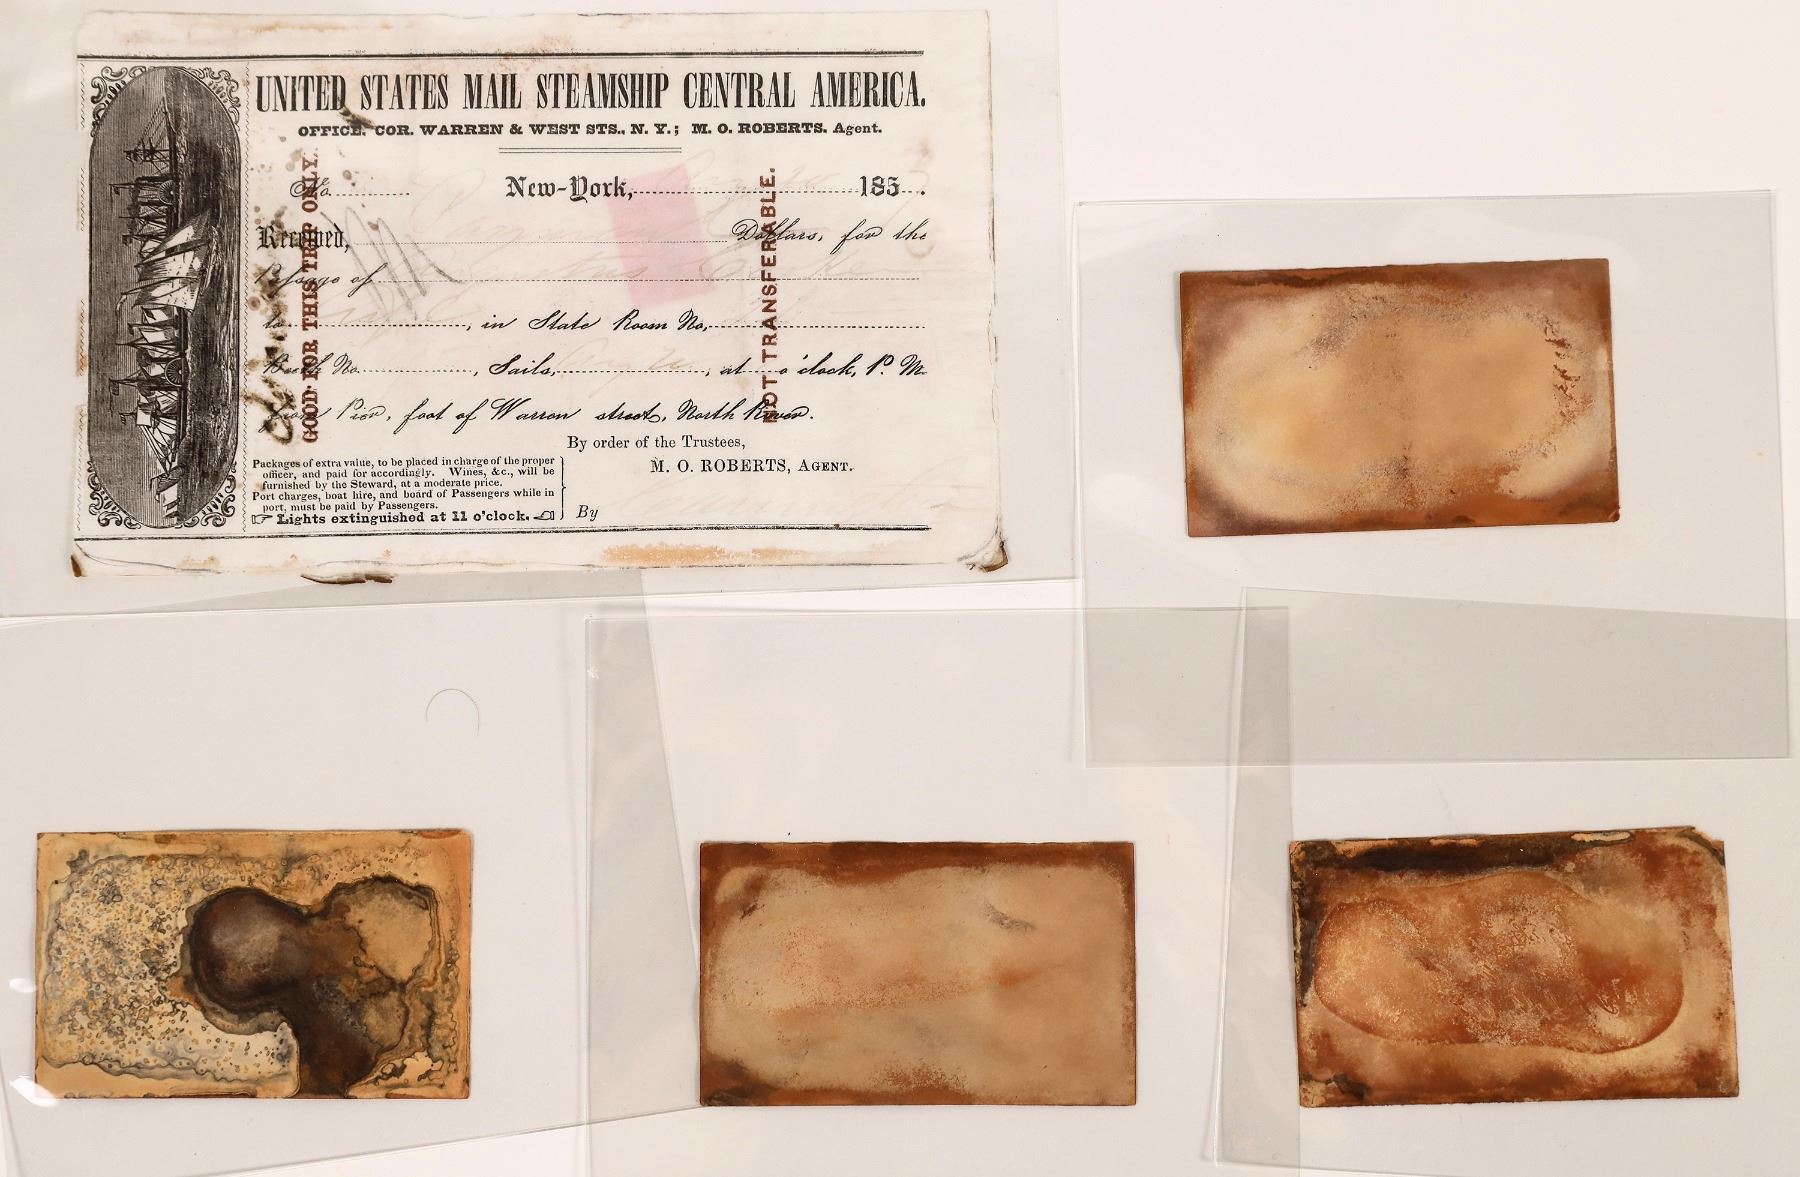 UNITED STATES MAIL STEAMSHIP CENTRAL AMERICA.
OFFICE, COR. WARREN & WEST STS., N. Y.; M. O. ROBERTS. Agent.
No. New-York, 185 .
Received, Dollars, for the
Passage of
to , in State Room No,
Berth No. , Sails, , at o'clock, P. M.
from Pier, foot of Warren street, North River.
By order of the Trustees,
M. O. ROBERTS, AGENT.
Packages of extra value, to be placed in charge of the proper
officer, and paid for accordingly. Wines, &c., will be
furnished by the Steward, at a moderate price.
Port charges, boat hire, and board of Passengers while in
port, must be paid by Passengers.
☞ Lights extinguished at 11 o'clock. ☜
By
GOOD FOR THIS TRIP ONLY.
NOT TRANSFERABLE.